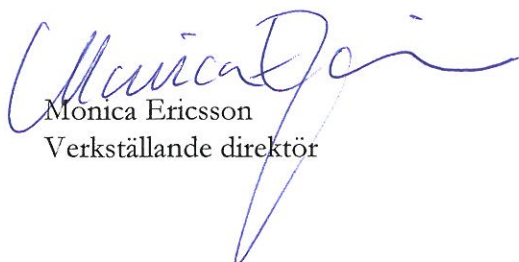 Monica Ericsson
Verkställande direktör